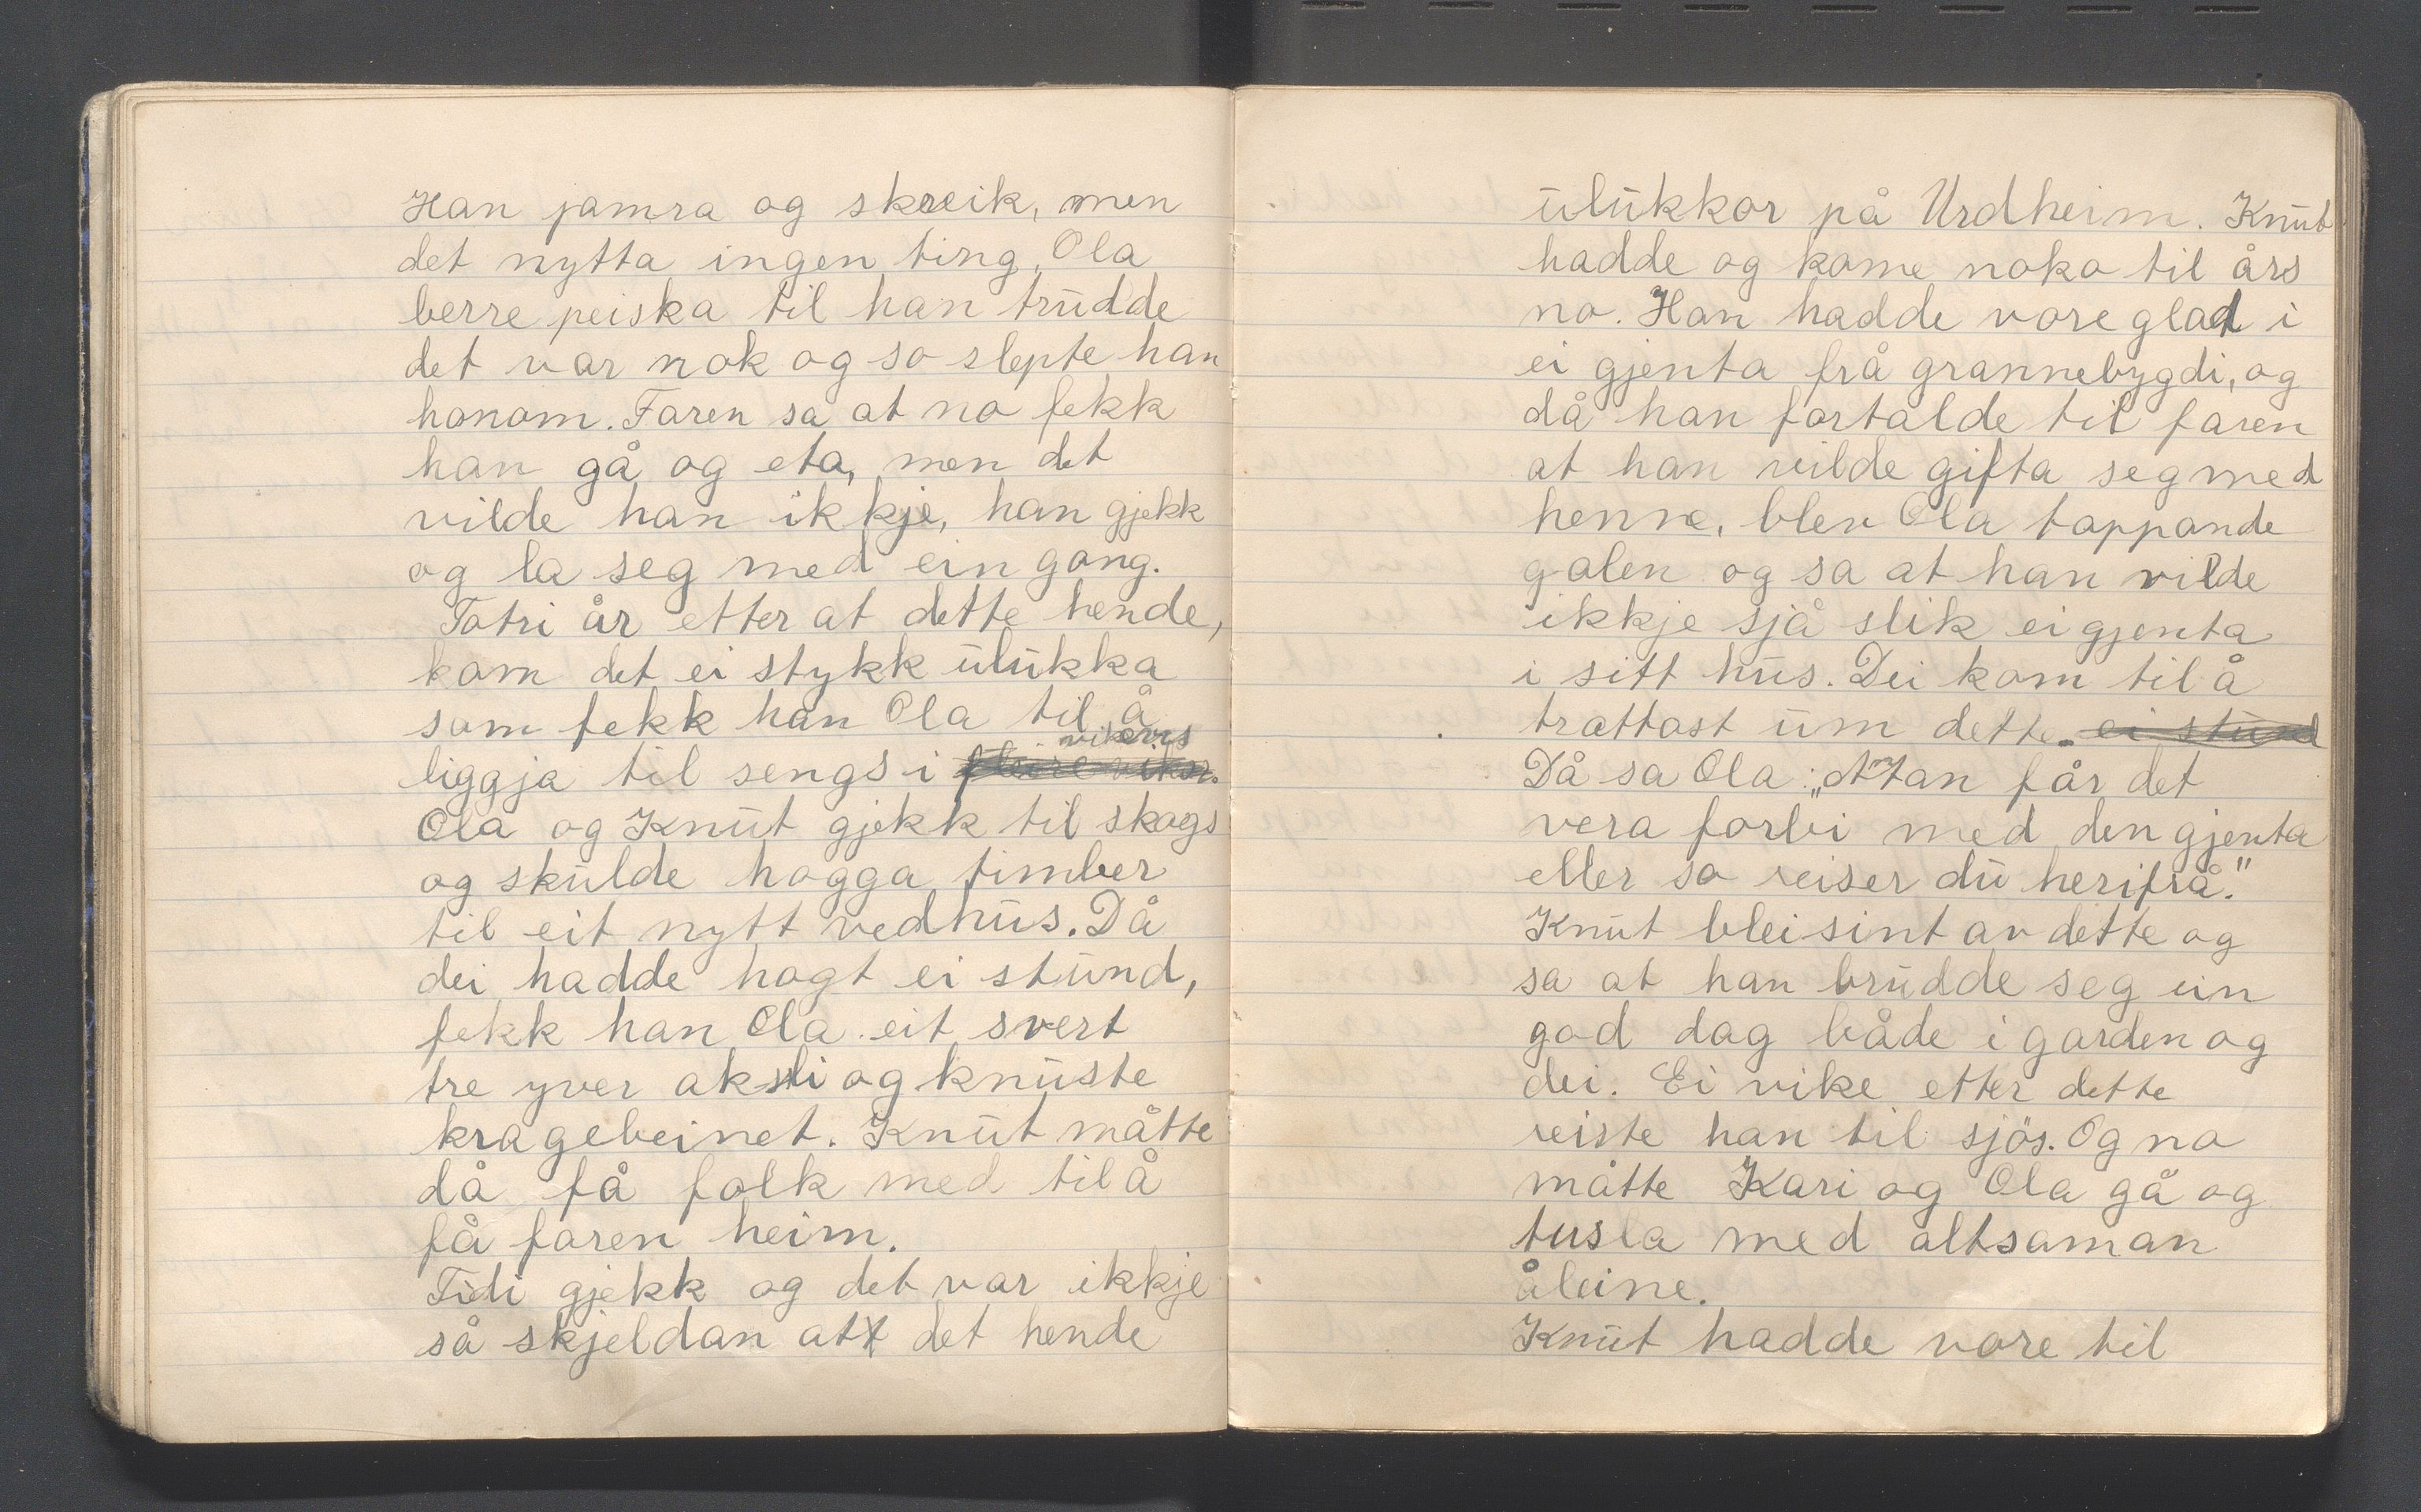 Han jamra og skreik, men
det nytta ingen ting, Ola
berre peiska til han trudde
det var nok og so slepte han
honom. Faren sa at no fekk
han gå og eta, men det
vilde han ikkje, han gjekk
og la seg med ein gong.
Totri år etter at dette hende,
kom det ei stykk ulukka
som fekk han Ola til å
vikevis
liggja til sengs i fleire vikor.
Ola og Knut gjekk til skogs
og skulde hogga timber
til eit nytt vedhus. Då
dei hadde hogt ei stund,
fekk han Ola eit svert
tre yver aksli og knuste
kragebeinet. Knut måtte
då få folk med til å
få faren heim.
Tidi gjekk og det var ikkje
så skjeldan att det hende
ulukkor på Urdheim. Knut
hadde og kome noko til års
no. Han hadde vore glad i
ei gjenta frå grannebygdi, og
då han fortalde til faren
at han vilde gifta seg med
henne, blev Ola toppande
galen og sa at han vilde
ikkje sjå slik ei gjenta
i sitt hus. Dei kom til å
trættast um dette. ei stund
Då sa Ola: „Antan får det
vera forbi med den gjenta
eller so reiser du herifrå."
Knut blei sint av dette og
sa at han brudde seg ein
god dag både i garden og
dei. Ei vike etter dette
reiste han til sjös. Og no
måtte Kari og Ola gå og
tusla med altsaman
åleine.
Knut hadde vore til